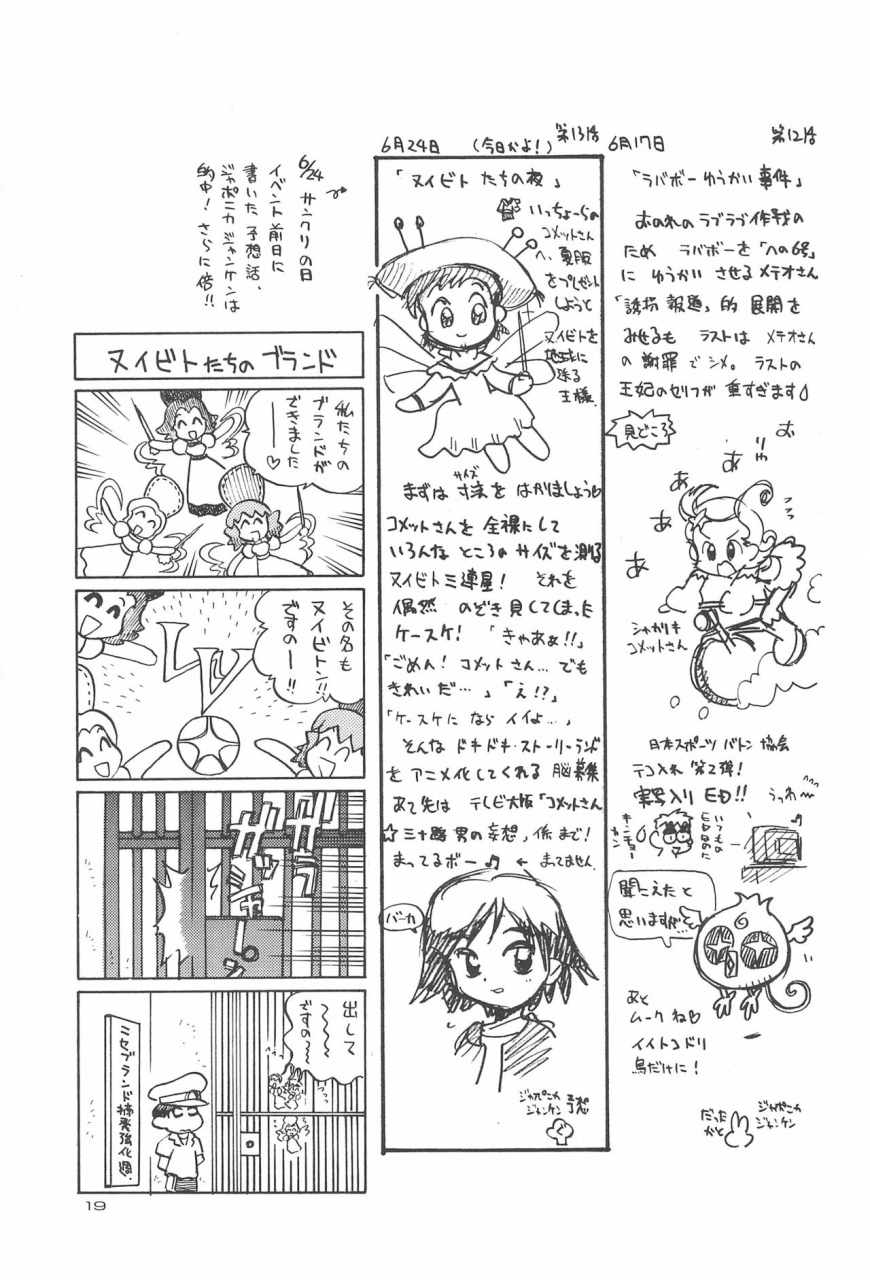 第12話
6月17日
「ラバボーゆうかい事件」
おのれのラブラブ作戦の
ため ラバボーを「への6号」
に ゆうかい させるメテオさん
「誘拐報道」的 展開を
みせるも ラストは メテオさん
の謝罪でシメ。ラストの
王妃のセリフが 重すぎます
見どころ
おりゃ
あ
あ
あ
あ
シャカリキ
コメットさん
日本スポーツバトン協会
テコ入れ 第2弾!
実写入りED!!
うっわ〜
いつもの
EDなのに
キンチョー
カン
聞こえたと
思いますが…
あと
ムークね♡
イイトコドリ
鳥だけに!
ジャポニカ
ジャンケン
だった
かと
第13話
6月24日 (今日かよ!)
「ヌイビトたちの夜」
いっちょーらの
コメットさん
へ、夏服
をプレゼント
しようと
ヌイビトを
地球に
送る
王様.
まずは 寸法を はかりましょう♡
サイズ
コメットさんを 全裸にして
いろんな ところの サイズを測る
ヌイビト三連星! それを
偶然 のぞき見してしまった
ケースケ! 「きゃあぁ!!」
「ごめん! コメットさん… でも
きれいだ…」「え!?」
「ケースケに なら イイよ…」
そんな ドキドキ・ストーリーランド
をアニメ化してくれる 脳募集
あて先は テレビ大阪「コメットさん
☆三十路男の妄想」係まで!
まってるボー♪ ← まってません.
バーカ
ジャポニカ
ジャンケン
予想
ぐ
6/24 サンクリの日
イベント前日に
書いた 予想話、
ジャポニカ ジャンケンは
的中! さらに倍!!
ヌイビトたちのブランド
私たちの
ブランドが
できました
〜♡
その名も
ヌイビトン!!
ですのー!!
LV
ガチャ
ガチャ
出して
ですの〜〜
ニセブランド摘発強化週.
19